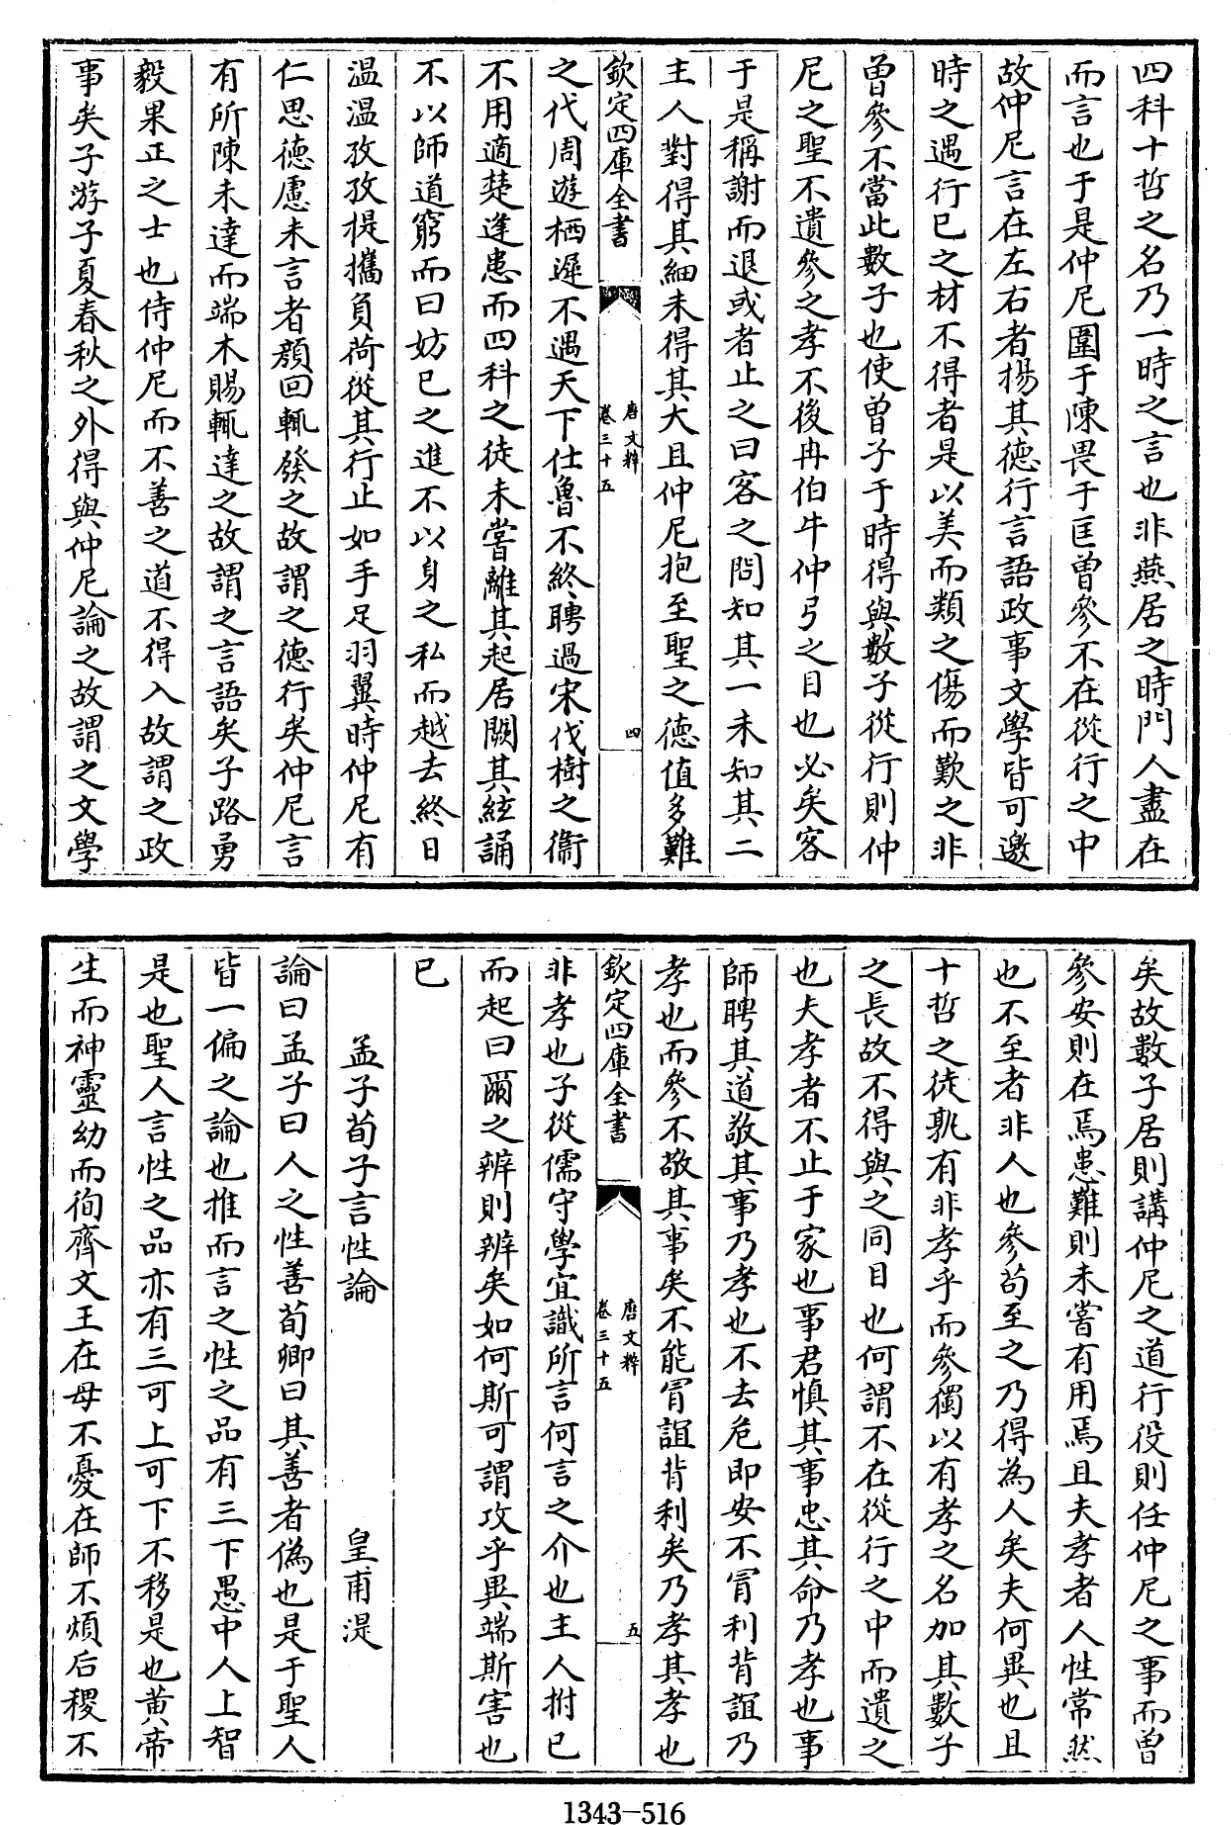 四科十哲之名乃一時之言也非燕居之時門人盡在
而言也于是仲尼圍于陳畏于匡曾參不在從行之中
故仲尼言在左右者揚其德行言語政事文學皆可邀
時之遇行已之材不得者是以美而類之傷而歎之非
曾參不當此數子也使曾子于時得與數子從行則仲
尼之聖不遺參之孝不後冉伯牛仲弓之目也必矣客
于是稱謝而退或者止之曰客之問知其一未知其二
主人對得其細未得其大且仲尼抱至聖之德值多難
欽定四庫全書
唐文粹
卷三十五
四
之代周遊栖遲不遇天下仕魯不終聘過宋伐樹之衞
不用適楚逢患而四科之徒未嘗離其起居闕其絃誦
不以師道窮而曰妨已之進不以身之私而越去終日
温温孜孜提攜負荷從其行止如手足羽翼時仲尼有
仁思德慮未言者顏回輒發之故謂之德行矣仲尼言
有所陳未達而端木賜輒達之故謂之言語矣子路勇
毅果正之士也侍仲尼而不善之道不得入故謂之政
事矣子游子夏春秋之外得與仲尼論之故謂之文學
矣故數子居則講仲尼之道行役則任仲尼之事而曾
參安則在焉患難則未嘗有用焉且夫孝者人性常然
也不至者非人也參苟至之乃得為人矣夫何異也且
十哲之徒孰有非孝乎而參獨以有孝之名加其數子
之長故不得與之同目也何謂不在從行之中而遺之
也夫孝者不止于家也事君慎其事忠其命乃孝也事
師聘其道敬其事乃孝也不去危即安不冐利背誼乃
孝也而參不敬其事矣不能冐誼背利矣乃孝其孝也
欽定四庫全書
唐文粹
卷三十五
五
非孝也子從儒守學宜識所言何言之介也主人拊已
而起曰爾之辨則辨矣如何斯可謂攻乎異端斯害也
已
孟子荀子言性論 皇甫湜
論曰孟子曰人之性善荀卿曰其善者偽也是于聖人
皆一偏之論也推而言之性之品有三下愚中人上智
是也聖人言性之品亦有三可上可下不移是也黃帝
生而神靈幼而徇齊文王在母不憂在師不煩后稷不
1343-516